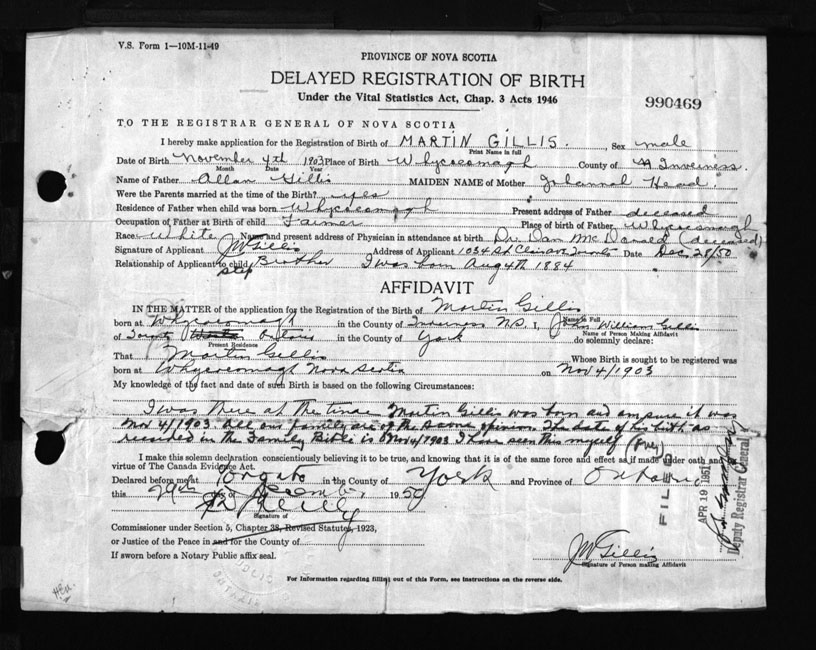 V.S. Form 1—10M-11-49
PROVINCE OF NOVA SCOTIA
DELAYED REGISTRATION OF BIRTH
Under the Vital Statistics Act, Chap. 3 Acts 1946
990469
TO THE REGISTRAR GENERAL OF NOVA SCOTIA
I hereby make application for the Registration of Birth of MARTIN GILLIS. Sex male
Print Name in full
Date of Birth November 4th 1903 Place of Birth Whycocomagh County of Inverness.
Month Date Year
Name of Father Allan Gillis MAIDEN NAME of Mother Head.
Were the Parents married at the time of the Birth? yes
Residence of Father when child was born Whycocomagh Present address of Father deceased
Occupation of Father at Birth of child Farmer Place of birth of Father Whycocomagh
Race White Name and present address of Physician in attendance at birth Dr. Dan McDonald (deceased)
Signature of Applicant JW Gillis Address of Applicant 1034 St Clinton Toronto Date Dec 28/50
Relationship of Applicant to child step Brother I was born Aug 4th 1884
AFFIDAVIT
IN THE MATTER of the application for the Registration of the Birth of Martin Gillis
Name in Full
born at Whycocomagh in the County of Inverness N.S. I, John William Gillis
Name of Person Making Affidavit
of Toronto Ontario in the County of York do solemnly declare:
Present Residence
That Martin Gillis Whose Birth is sought to be registered was
born at Whycocomagh Nova Scotia on Nov 4/1903
My knowledge of the fact and date of such Birth is based on the following Circumstances:
I was there at the time Martin Gillis was born and am sure it was
Nov 4/1903. All our family are of the same opinion. The date of his birth as
recorded in the Family Bible is Nov 4/1903 I have seen this myself
I make this solemn declaration conscientiously believing it to be true, and knowing that it is of the same force and effect as if made under oath and by
virtue of The Canada Evidence Act.
Declared before me at Toronto in the County of York and Province of Ontario
this 29th day of December 1950
Signature of
Commissioner under Section 5, Chapter 38, Revised Statutes, 1923,
or Justice of the Peace in and for the County of
If sworn before a Notary Public affix seal.
JW Gillis
Signature of Person making Affidavit
For Information regarding filling out of this Form, see instructions on the reverse side.
FILED
APR 19 1951
Deputy Registrar General